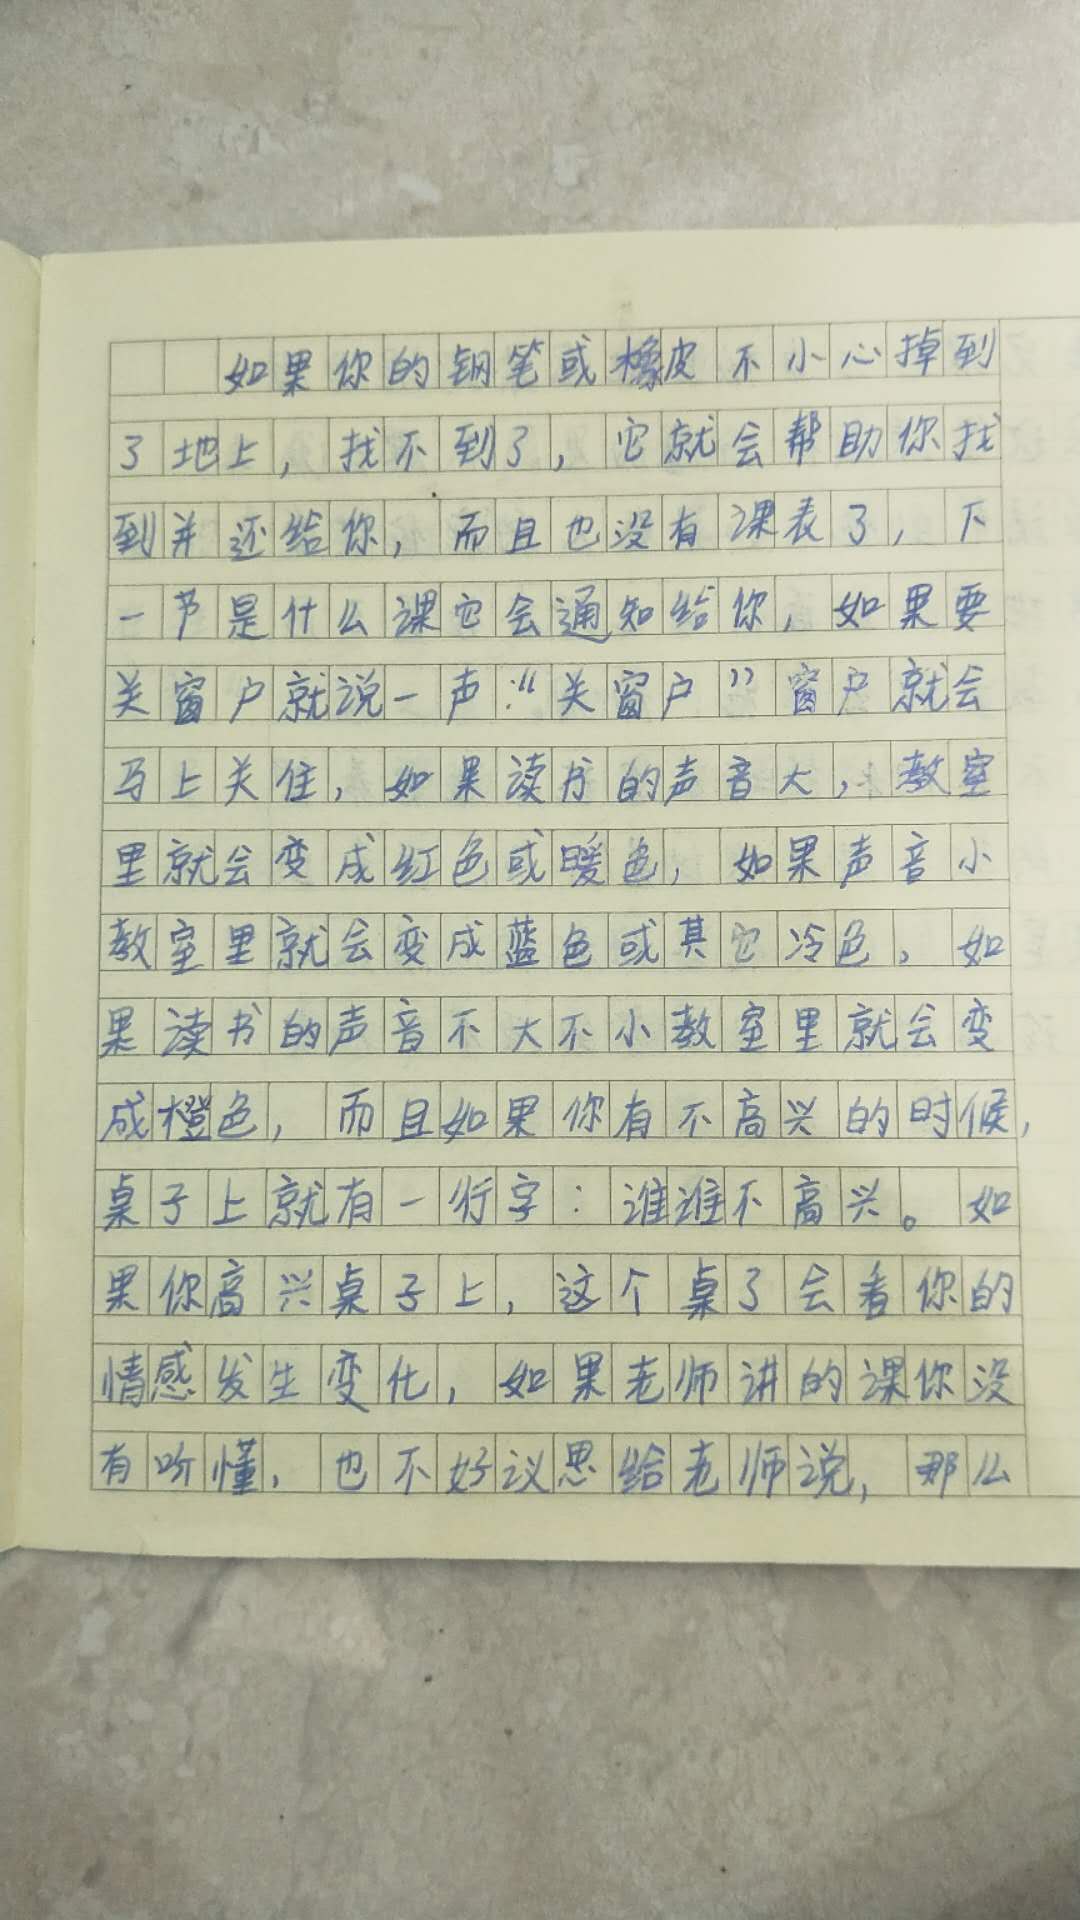 如果你的钢笔或橡皮不小心掉到
了地上，找不到了，它就会帮助你找
到并还给你，而且也没有课表了，下
一节是什么课它会通知给你，如果要
关窗户就说一声：“关窗户”窗户就会
马上关住，如果读书的声音大，教室
里就会变成红色或暖色，如果声音小
教室里就会变成蓝色或其它冷色。如
果读书的声音不大不小教室里就会变
成橙色，而且如果你有不高兴的时候，
桌子上就有一行字：谁谁不高兴。如
果你高兴桌子上，这个桌了会看你的
情感发生变化，如果老师讲的课你没
有听懂，也不好议思给老师说，那么